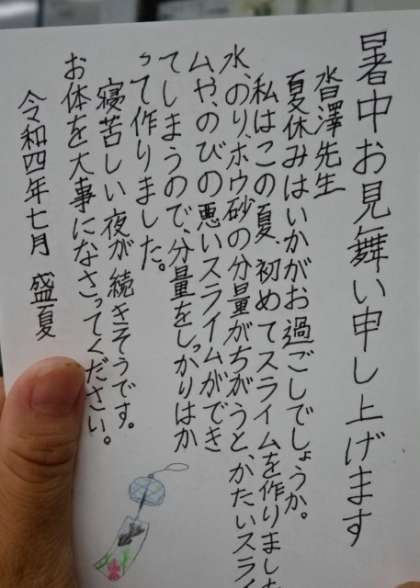 暑中お見舞い申し上げます
沓澤先生
夏休みはいかがお過ごしでしょうか。
私はこの夏、初めてスライムを作りました
水、のり、ホウ砂の分量がちがうと、かたいスライ
ム、や、のびの悪いスライムができ
てしまうので、分量をしっかりはか
って作りました。
寝苦しい夜が続きそうです。
お体を大事になさってください。
令和四年七月 盛夏